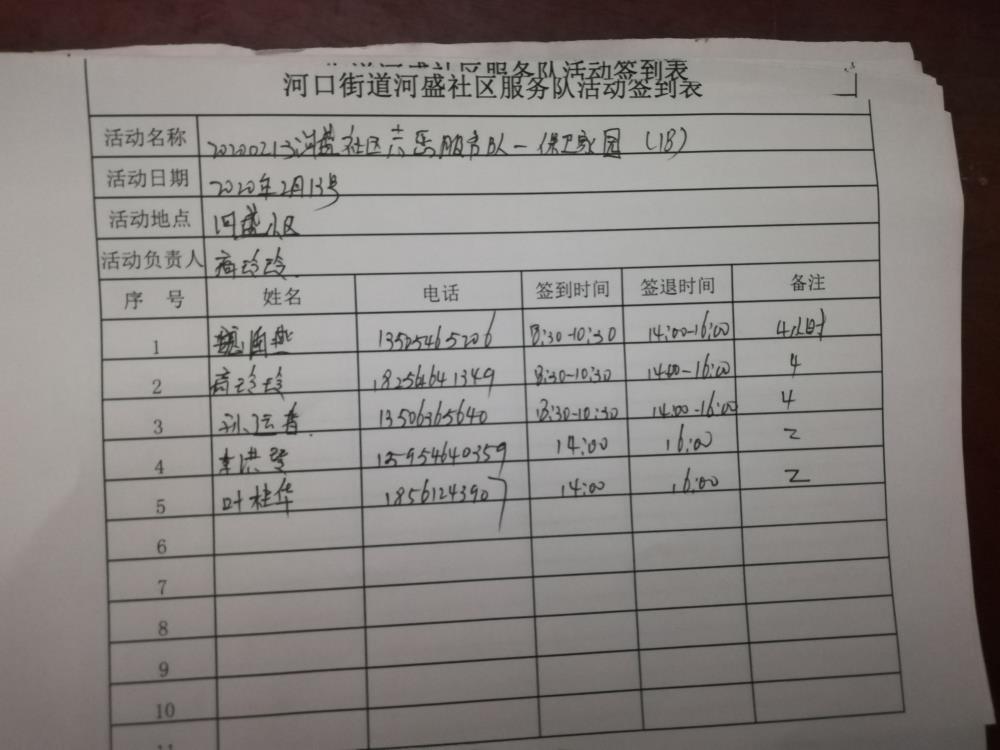 河口街道河盛社区服务队活动签到表
活动名称 20200213河盛社区 服务队一保卫家园(1B)
活动日期 2020年2月13号
活动地点 河盛小区
活动负责人 玲玲
序 号 姓名 电话 签到时间 签退时间 备注
1 13505465206 8:30-10:30 14:00-16:00 4小时
2 玲玲 182564641349 8:30-10:30 14:00-16:00 4
3 13506365640 8:30-10:30 14:00-16:00 4
4 李洪 13954640359 14:00 16:00 2
5 叶桂华 18561243907 14:00 16:00 2
6
7
8
9
10